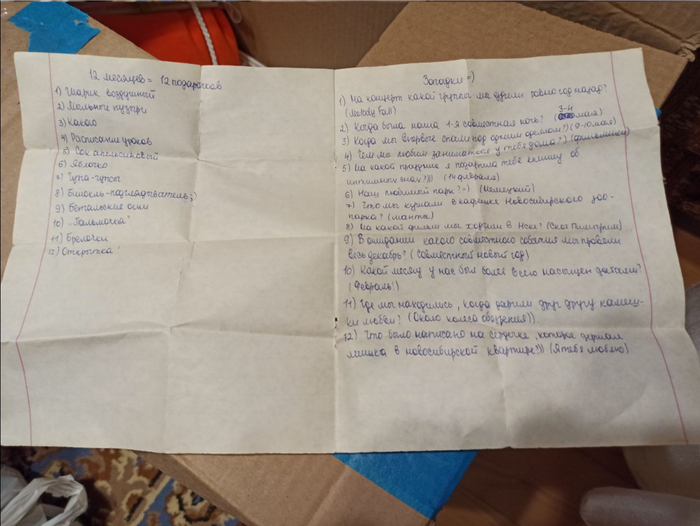 12 месяцев = 12 подарочков
1) Шарик воздушный
2) Мыльные пузыри
3) Какао
4) Расписание уроков
5) Сок апельсиновый
6) Яблоко
7) Чупа-чупсы
8) Бинокль-подглядыватель;)
9) Бенгальские огни
10) "Гальмочка"
11) Брелочки
12) Открытка!
Загадки =)
1) На концерт какой группы мы ходили ровно год назад?
2) Когда была наша 1-я совместная ночь? 3-4 мая)
3) Когда мы впервые спали под одним одеялом?) (9-10 мая)
4) Чем мы любим заниматься у тебя дома?)
5) На какой праздник я подарила тебе книжку об
интимных (14 февраля)
6) Наш любимый парк? :-) (Немецкий)
7) Что мы курили в кафешке Новосибирского зоо-
парка? (мальянс)
8) На какой фильм мы ходили в Нске? (Скот Пилигрим)
9) В ожидании какого совместного события мы провели
весь декабрь? (Совместный новый год)
10) Какой месяц у нас был более всего насыщен датами?
(Февраль!)
11) Где мы находились, когда дарили друг другу
любви? (Около колеса обозрения))
12) Что было написано на сердечке, которое держал
мишка в новосибирской квартире?)) (Я тебя люблю)